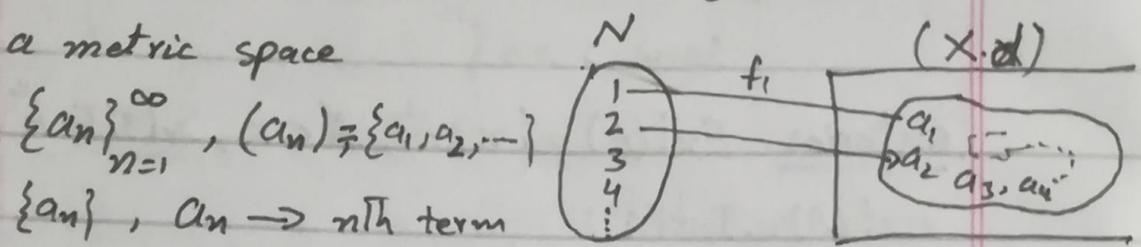 a metric space
{aₙ}∞ₙ₌₁ , (aₙ) ≠ {a₁, a₂, ---}
{aₙ} , aₙ → nth term
N
1
2
3
4
⋮
f₁
(X.d)
a₁
a₂
a₃, a₄